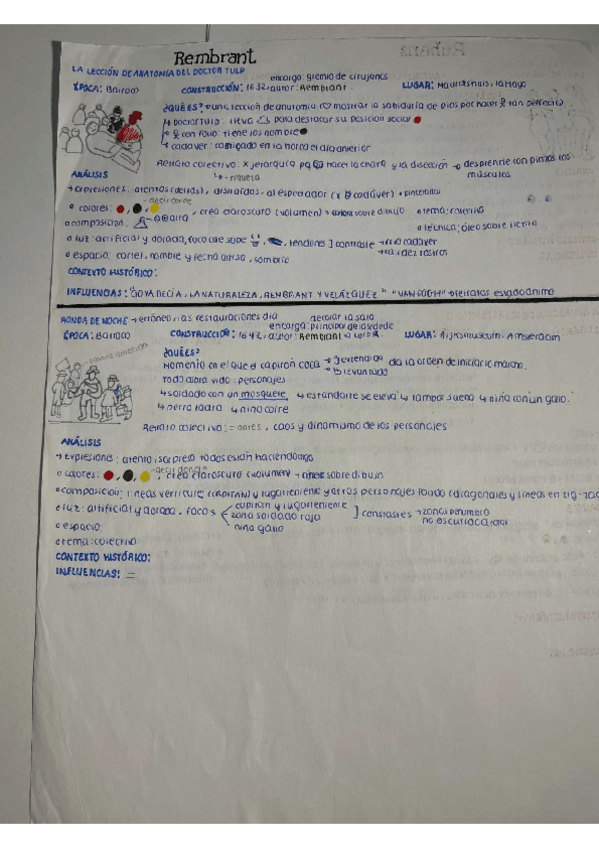 Rembrant
LA LECCIÓN DE ANATOMÍA DEL DOCTOR TULP encargo: gremio de cirujanos
ÉPOCA: Barroco CONSTRUCCIÓN: 1632, autor: Rembrant LUGAR: Mauritshuis, la Haya
¿QUÉ ES? una lección de anatomía mostrar la sabiduría de Dios por hacer tan perfecto
Doctor TULP: lleva para destacar su posición social
con folio: tiene los nombres
cadáver: castigado en la horca el día anterior
Retrato colectivo: x jerarquía pq hacer la charla y la disección → desprende con pinzas los músculos
↳ riqueza
ANÁLISIS
expresiones: atentos (detrás), distraídos, al espectador (x cadáver)
colores: , crea claroscuro (volumen) → sobre dibujo tema: colectivo
composición: técnica: óleo sobre lienzo
luz: artificial y dorada, foco cae sobre , tendones ] contraste
espacio: cartel, nombre y fecha artista, sombrío
CONTEXTO HISTÓRICO:
INFLUENCIAS: "GOYA DECÍA, LA NATURALEZA, REMBRANT Y VELÁZQUEZ" "VAN GOGH"
RONDA DE NOCHE → erróneo, las restauraciones día decorar la sala
encarga: principal de la sede
ÉPOCA: Barroco CONSTRUCCIÓN: 1642, autor: Rembrant LUGAR: Rijksmuseum, Amsterdam
¿QUÉ ES?
Momento en el que el capitán Cocq da la orden de iniciar la marcha.
Toda obra vida: personajes
↳ soldado con un mosquete, ↳ estandarte se eleva ↳ tambor suena ↳ niña con un gallo.
↳ perro ladra ↳ niño corre
Retrato colectivo: = antes, caos y dinamismo de los personajes
ANÁLISIS
Expresiones: atento, sorpresa todos están haciendo algo
colores: , crea claroscuro (volumen) → sobre dibujo
composición: líneas verticales (capitán) y lugarteniente y otros personajes fondo (diagonales y líneas en zig-zag
luz: artificial y dorada, focos capitán y lugarteniente
zona soldado rojo ] contrastes → zonas penumbra
niña gallo no oscuridad total
espacio:
tema: colectivo
CONTEXTO HISTÓRICO:
INFLUENCIAS: =